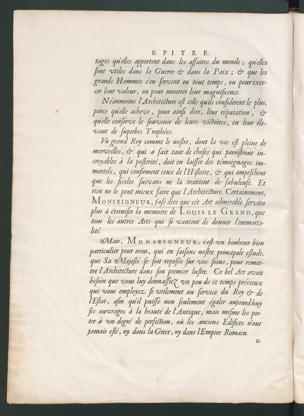 EPITRE.
tages qu'elles apportent dans les affaires du monde; qu'elles
sont utiles dans la Guerre & dans la Paix; & que les
grands Hommes s'en servent en tout temps, ou pour exer-
cer leur valeur, ou pour montrer leur magnificence.
Néanmoins l'Architecture est celle qu'ils considerent le plus,
parce qu'elle acheve, pour ainsi dire, leur réputation, &
qu'elle conserve le souvenir de leurs victoires, en leur éle-
vant de superbes Trophées.
Un grand Roy comme le nostre, dont la vie est pleine de
merveilles, & qui a fait tant de choses qui paroistront in-
croyables à la posterité, doit en laisser des témoignages im-
mortels, qui confirment ceux de l'Histoire, & qui empeschent
que les siécles suivans ne la traittent de fabuleuse. Et
rien ne le peut mieux faire que l'Architecture. Certainement,
MONSEIGNEUR, j'ose dire que cét Art admirable servira
plus à éterniser la memoire de LOUIS LE GRAND, que
tous les autres Arts qui se vantent de donner l'immorta-
lité.
Mais, MONSEIGNEUR, c'est un bonheur bien
particulier pour nous, qui en faisons nostre principale estude,
que Sa Majesté se soit reposée sur vos soins, pour remet-
tre l'Architecture dans son premier lustre. Ce bel Art avoit
besoin que vous luy donnassiez un peu de ce temps précieux
que vous employez si utilement au service du Roy & de
l'Estat, afin qu'il puisse non seulement égaler aujourd'huy
ses ouvrages à la beauté de l'Antique, mais mesme les por-
ter à un degré de perfection, où les anciens Edifices n'ont
jamais esté, ny dans la Grece, ny dans l'Empire Romain.